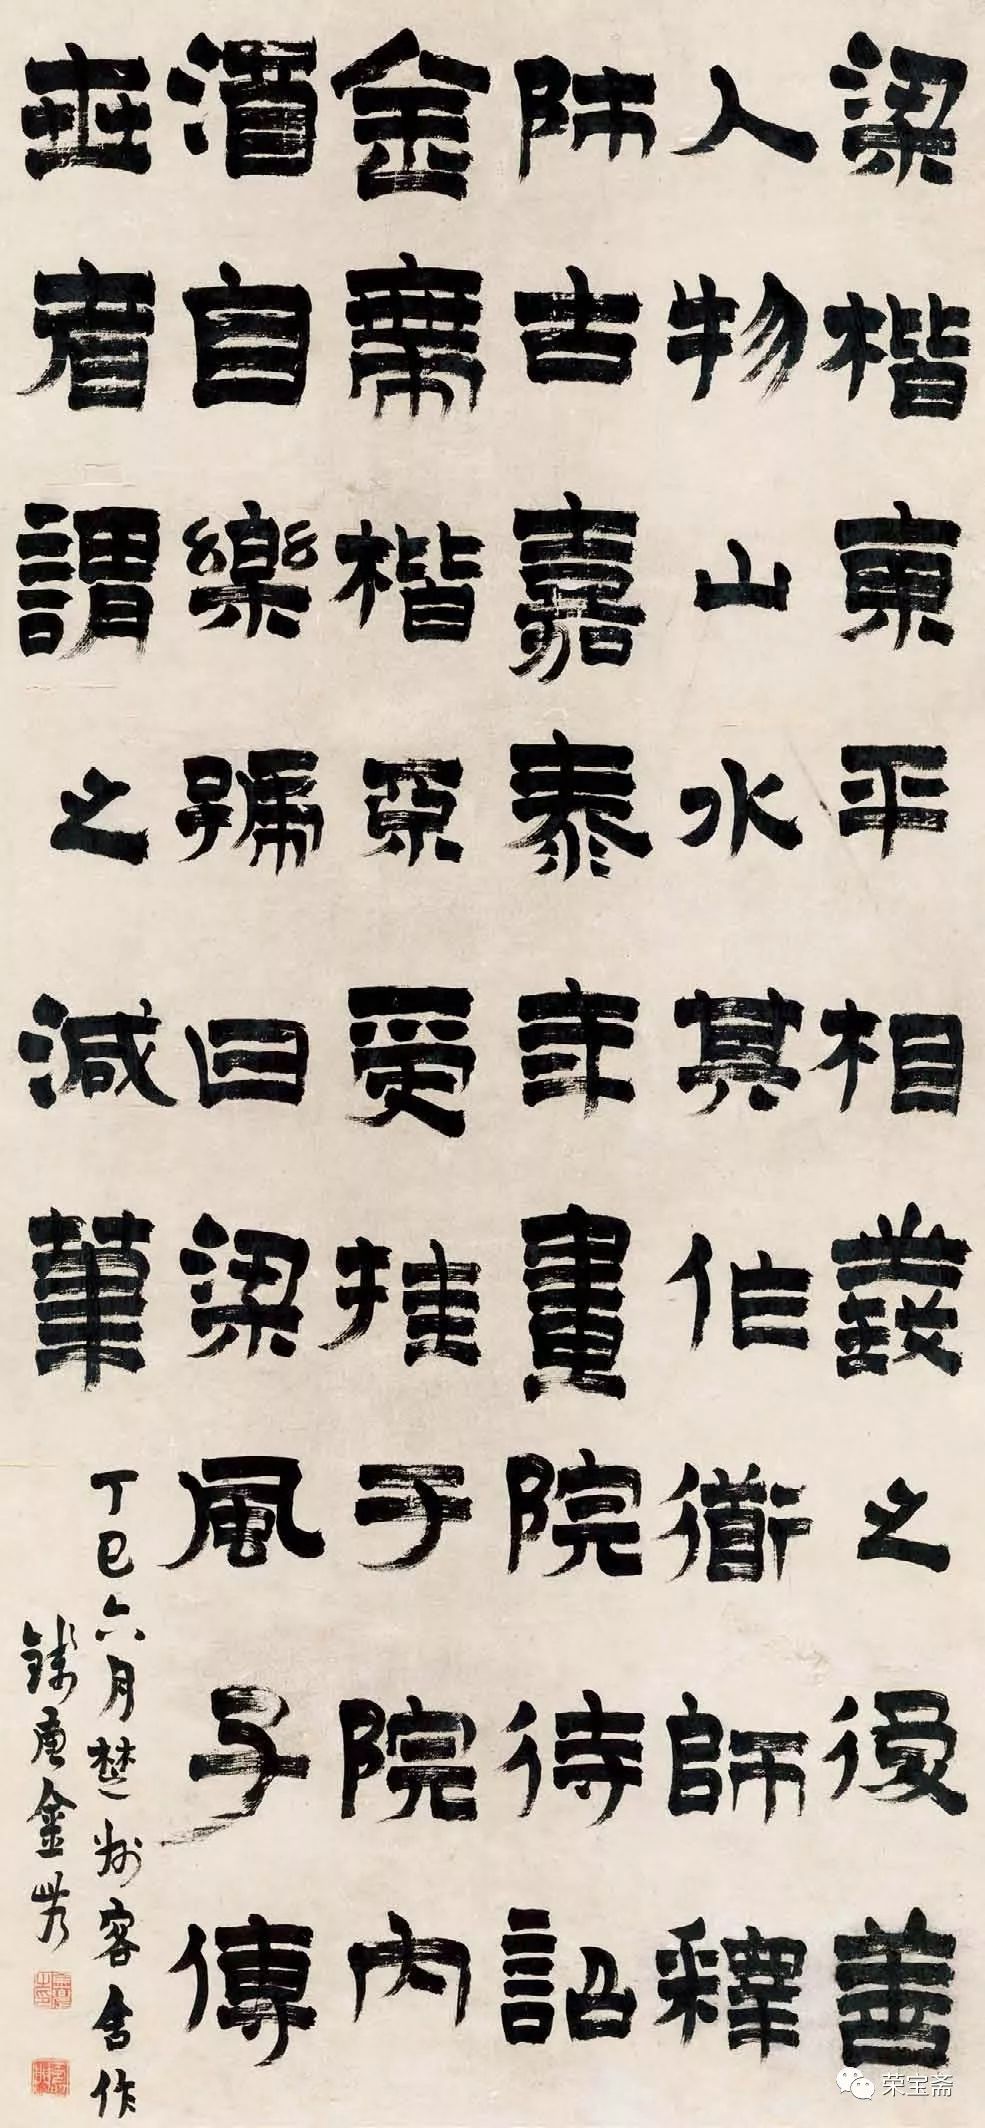 梁楷東平相之後善
人物山水其作衜師釋
師古嘉泰年畫院待詔
金帶楷受挂于院内
酒自樂號曰梁風子傳
世者謂之減筆
丁巳六月楚州客舍作
錢唐金農
荣宝斋